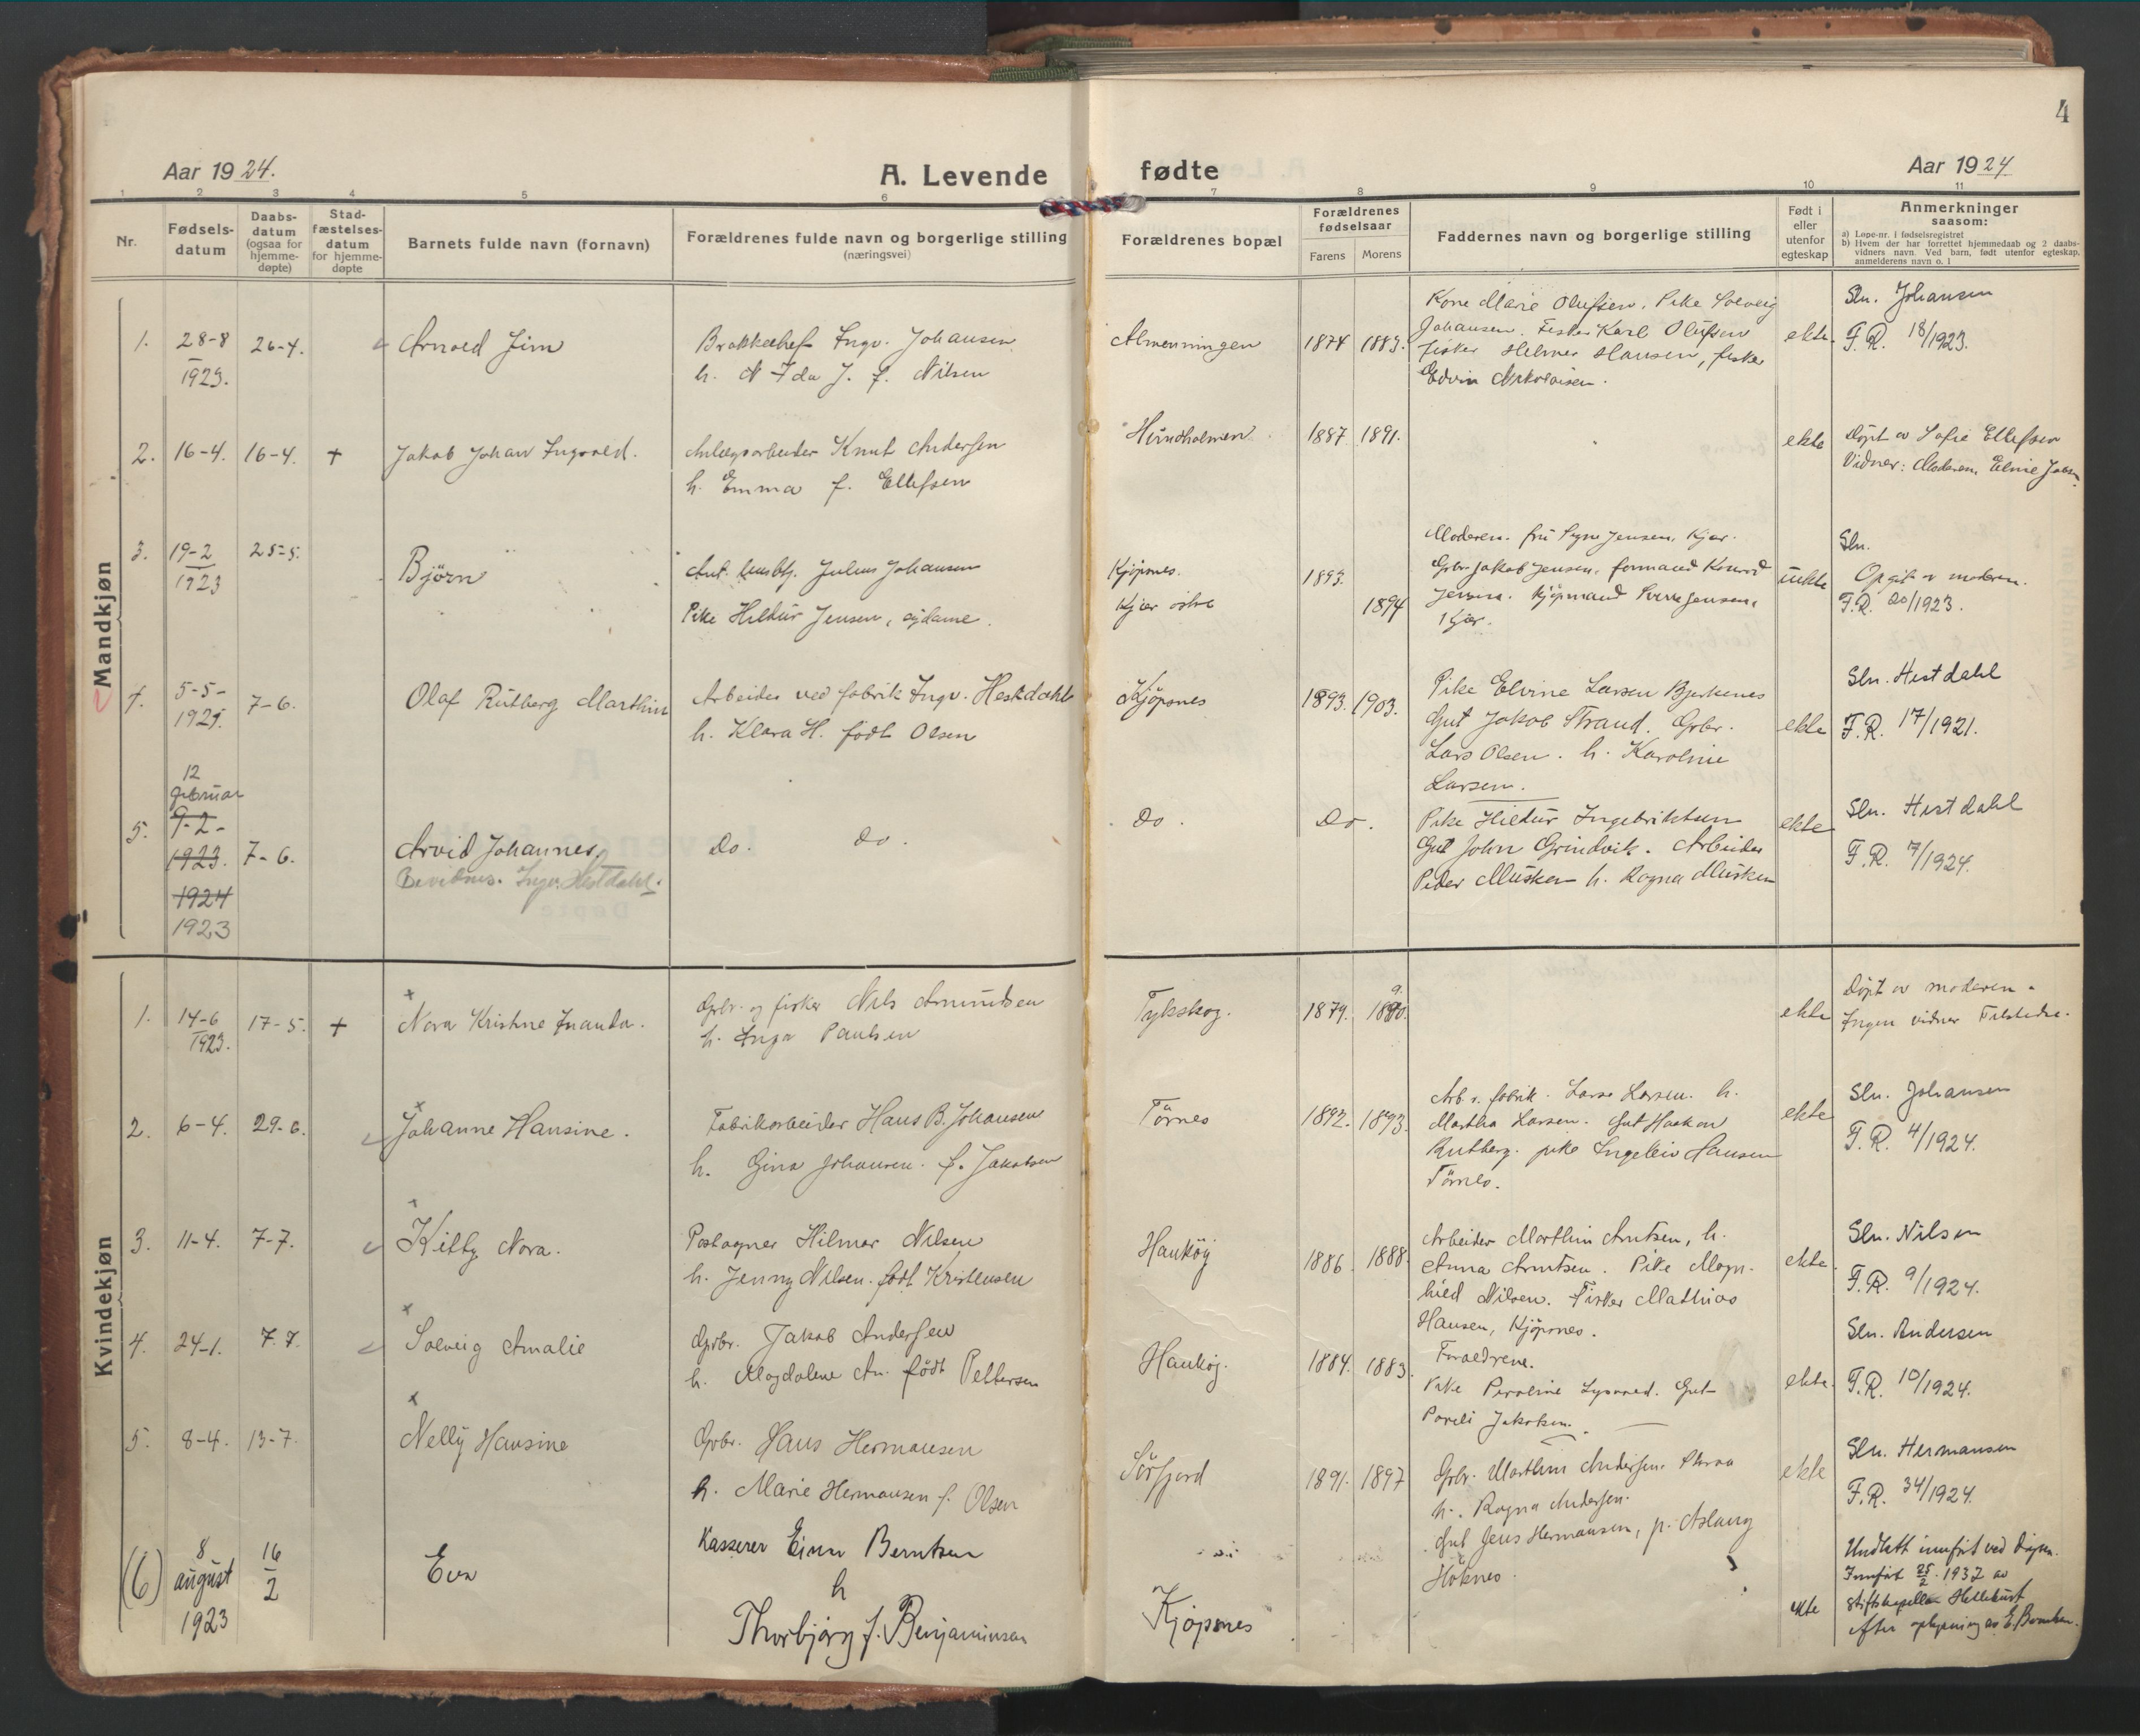 4
Aar 1924.
A. Levende fødte
Aar 1924
1 2 3 4 5 6 7 8 9 10 11
Nr.
Fødsels-
datum
Daabs-
datum
(ogsaa for
hjemme-
døpte)
Stad-
fæstelses-
datum
for hjemme-
døpte
Barnets fulde navn (fornavn)
Forældrenes fulde navn og borgerlige stilling
(næringsvei)
Forældrenes bopæl
Forældrenes
fødselsaar
Farens Morens
Faddernes navn og borgerlige stilling
Født i
eller
utenfor
egteskap
Anmerkninger
saasom:
a) Løpe-nr. i fødselsregistret
b) Hvem der har forrettet hjemmedaab og 2 daabs-
vidners navn. Ved barn, født utenfor egteskap,
anmelderens navn o. l
Mandkjøn
1. 28-8
1923.
26-4.
Arnold Jim
Ingv. Johansen
h. Ida J. f. Nilsen
Almenningen
1874 1883.
Kone Marie Olufsen. Pike Solveig
Johansen. Fisker Karl Olufsen
fisker Hilmer Hansen, fisker
Edvin Nikolaisen.
ekte.
Sln. Johansen
F.R. 18/1923.
2. 16-4. 16-4. +
Jakob Johan Ingvald.
Anlægsarbeider Knut Andersen
h. Emma f. Ellefsen
Hundholmen
1887 1891.
ekte
Døpt av Sofie Ellefsen
Vidner: Moderen,
3. 19-2
1923
25-5.
Björn
Julius Johansen
Pike Hildur Jensen, sydame.
Kjöpsnes.
Kjær
1893.
1894
Moderen. fru Signe Jensen, Kjær.
Gbr. Jakob Jensen. formand Konrad
Jensen. Kjöpmand Sverre Jensen,
Kjær.
uekte
Sln.
Opgit av moderen.
F.R. 20/1923.
4. 5-5-
1921.
7-6.
Olaf Rutberg Marthin
Arbeider ved fabrik Ingv. Hestdahl
h. Klara H. född Olsen
Kjöpsnes
1893. 1903.
Pike Elvine Larsen Bjerkenes
Gut Jakob Strand. Gbr.
Lars Olsen. h. Karoline
Larsen.
ekte
Sln. Hestdahl
F.R. 17/1921.
5. 12
februar
9-2-
1923.
1924
1923
7-6.
Arvid Johannes.
Bevitnes. Ingv. Hestdahl.
Do. do.
Do. Do.
Pike Hildur Ingebriktsen
Gut John Grindvik. Arbeider
Peder Musken h. Ragna Musken
ekte
Sln. Hestdahl
F.R. 7/1924.
Kvindekjøn
1. 14-6
1923.
17-5. +
Nora Kristine Juanda.
Gbr. og fisker Nils Amundsen
h. Inga Paulsen
Tykskog.
1879.
ekte
Døpt av moderen.
Ingen vidner Tilstede.
2. 6-4. 29-6.
Johanne Hansine.
Fabrikarbeider Hans B. Johansen
h. Gina Johansen. f. Jakobsen
Törnes
1892. 1893.
Arb. v. fabrik. Lars Larsen. h.
Martha Larsen. Gut Haakon
Rutberg. pike Ingeleiv Hansen
Törnes.
ekte
Sln. Johansen
F.R. 4/1924.
3. 11-4. 7-7.
Kitty Nora.
Postaapner Hilmar Nilsen
h. Jenny Nilsen. född Kristensen
Hauköy
1886. 1888.
Arbeider Marthin Arntsen, h.
Anna Arntsen. Pike Magn-
hild Nilsen. Fisker Mathias
Hansen, Kjöpsnes.
ekte.
Sln. Nilsen
F.R. 9/1924.
4. 24-1. 7-7.
Solveig Amalie
Gbr. Jakob Andersen
h. Magdalene An. född Pettersen
Hauköy.
1884. 1883.
Foraeldrene.
Pike Peroline Gut
Jakobsen.
ekte.
Sln. Andersen
F.R. 10/1924.
5. 8-4. 13-7.
Nelly Hansine
Gbr. Hans Hermansen
h. Marie Hermansen f. Olsen
Sörfjord
1891. 1897
Gbr. Marthin Andersen.
h. Ragna Andersen.
Gut Jens Hermansen, p. Aslaug
ekte
Sln. Hermansen
F.R. 34/1924.
(6) 8
august
1923
16
2
Eva
Kasserer Einar Berntsen
h
Thorbjørg f. Benjaminsen
Kjöpsnes
ekte
Undlatt innført ved dåpen.
Innført 25/2. 1932 av
stiftskapellan Hellekurt
efter oplysning av E. Berntsen.